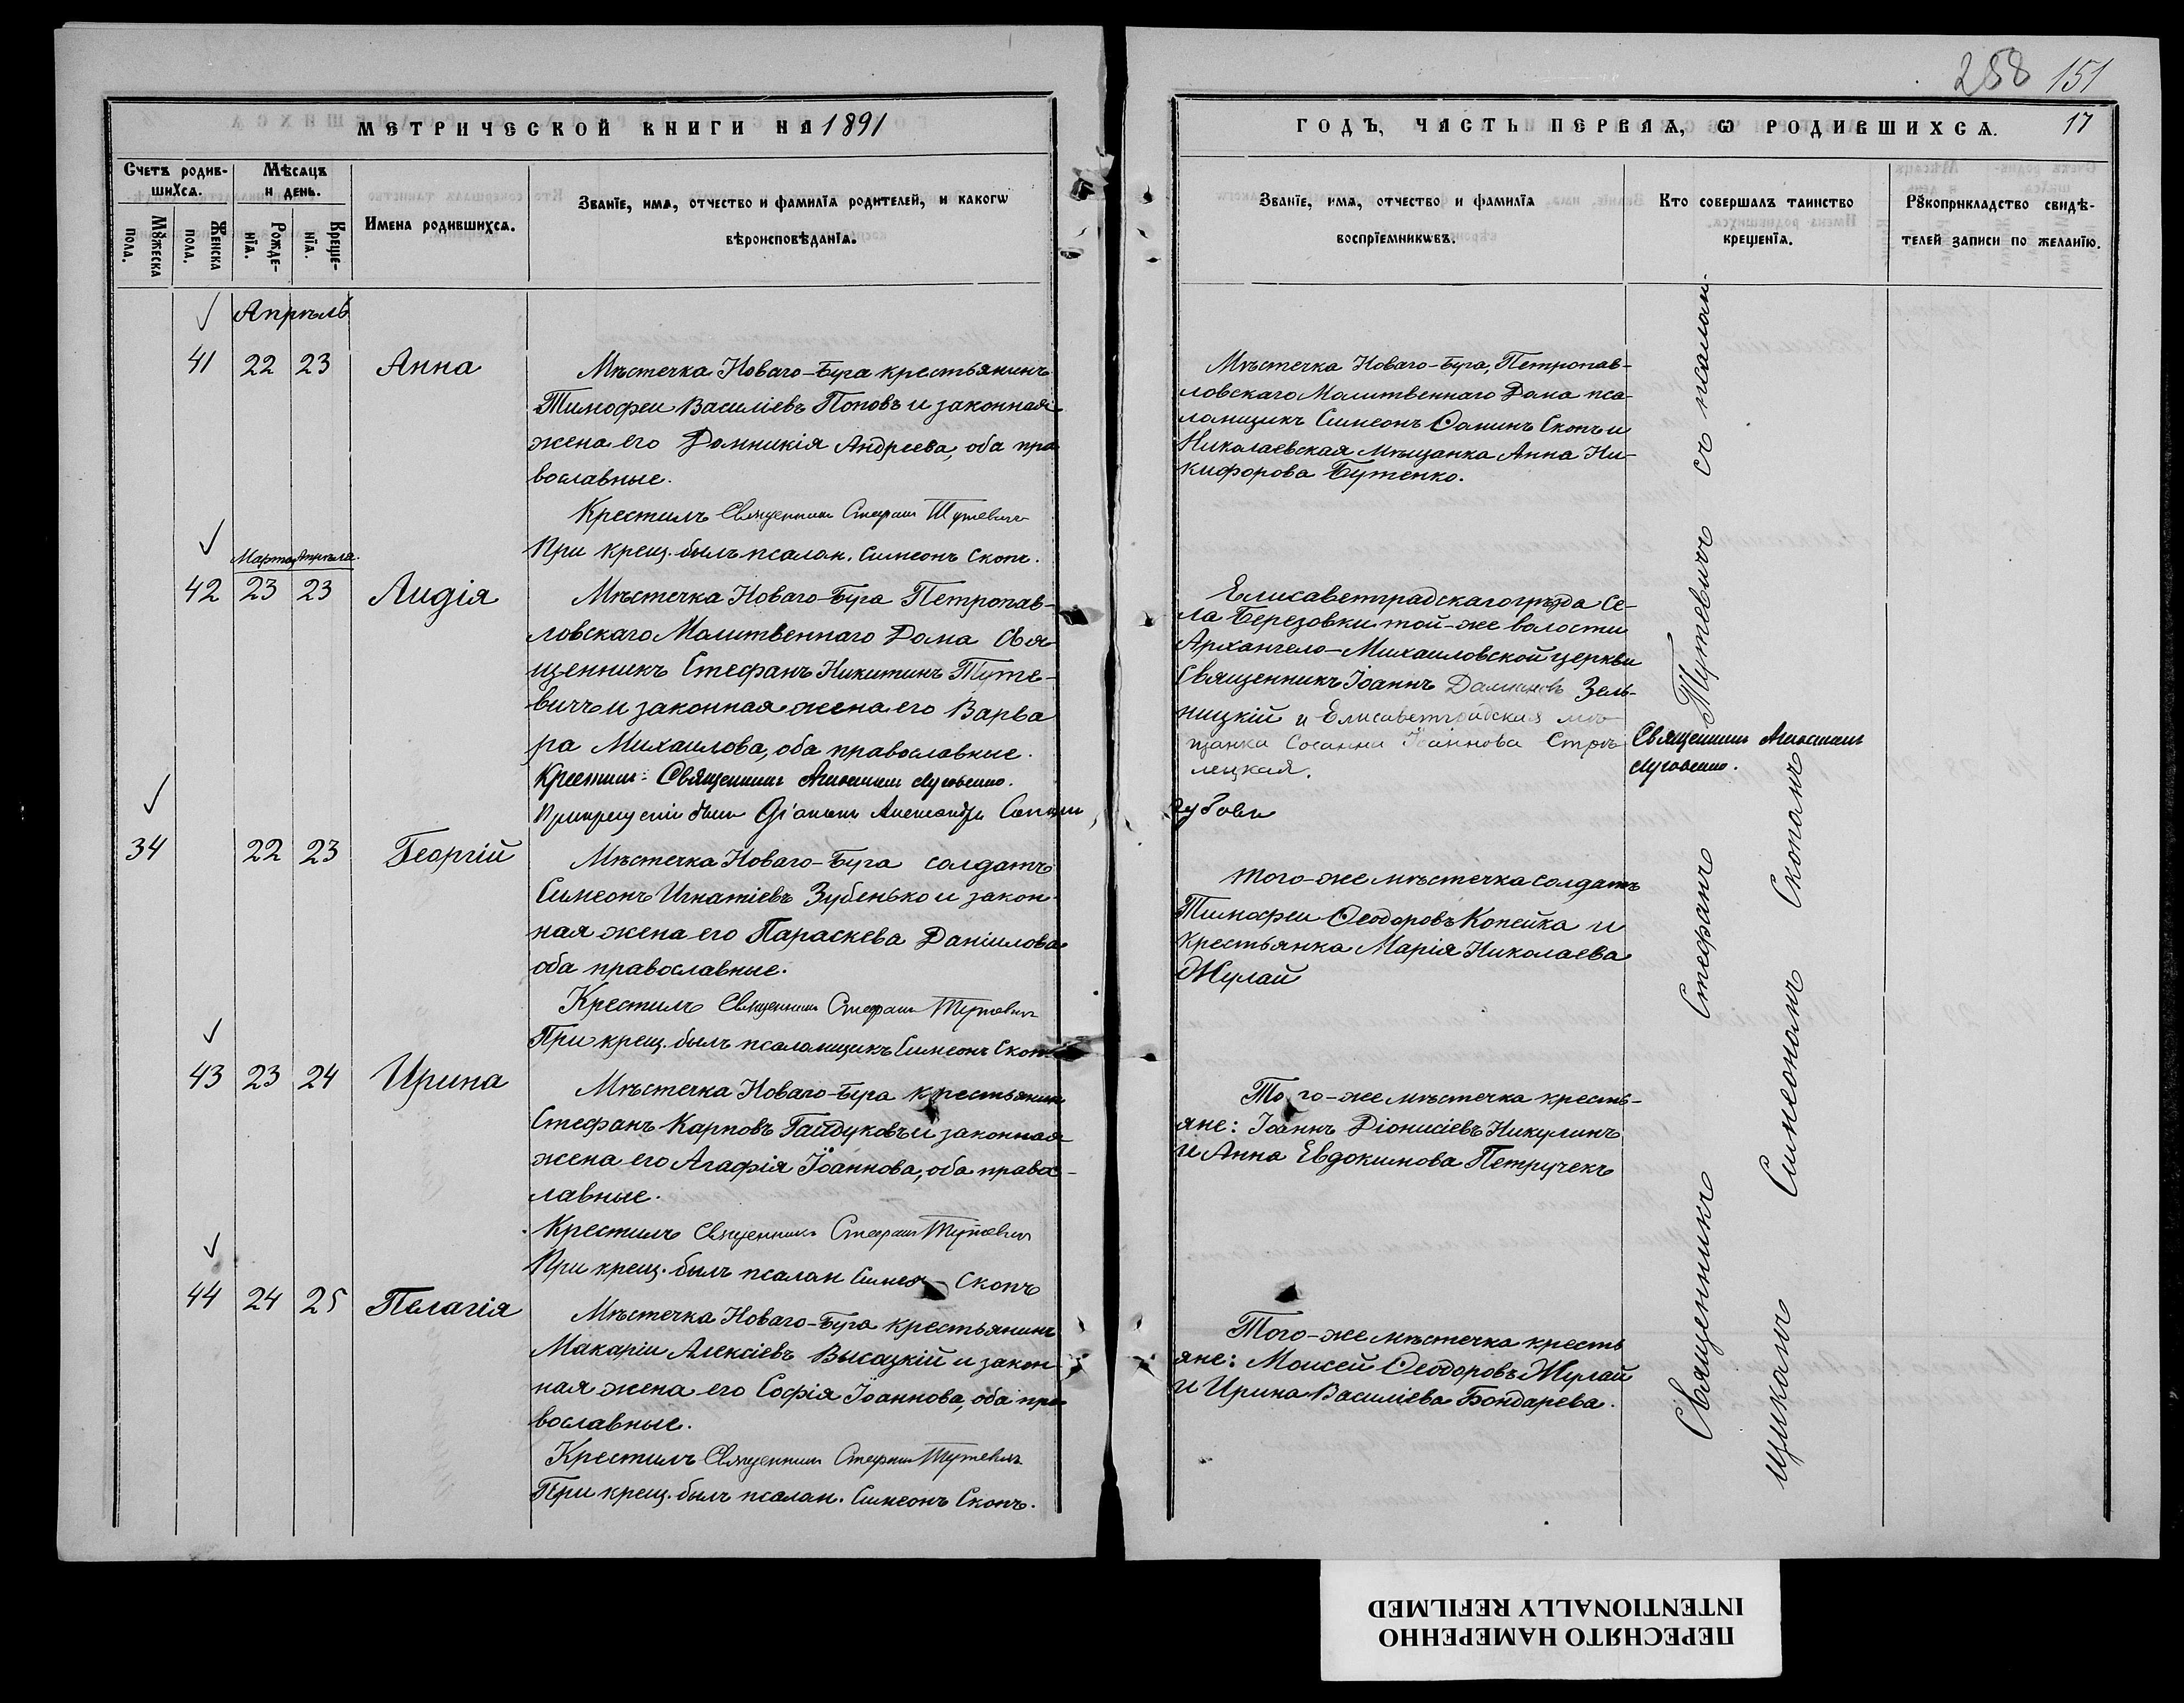 258 151
МЕТРИЧЕСКОЙ КНИГИ НА 1891
ГОДЪ, ЧАСТЬ ПЕРВАЯ, Ѡ РОДИВШИХСѦ. 17
Счетъ родив-
шихсѧ.
Мѣсѧцъ
и день.
Мꙋжеска
пола.
Женска
пола.
Рожде-
нїѧ.
Креще-
нїѧ.
Имена родившихсѧ.
Званїе, имѧ, отчество и фамилїѧ родителей, и какогѡ
вѣроисповѣданїѧ.
Званїе, имѧ, отчество и фамилїѧ
воспрїемникѡвъ.
Кто совершалъ таинство
крещенїѧ.
Рꙋкоприкладство свидѣ-
телей записи по желанїю.
Апрѣль
41 22 23 Анна
Мѣстечка Новаго-Буга крестьянинъ
Тимофеи Василіевъ Поповъ и законная
жена его Домникія Андреева, оба пра
вославные.
Крестилъ Священникъ Стефанъ Тутевичъ
При крещ. былъ псалом. Симеонъ Скопъ.
Мѣстечка Новаго-Буга, Петропав-
ловскаго Молитвеннаго Дома пса-
ломщикъ Симеонъ Ѳоминъ Скопъ и
Николаевская мѣщанка Анна Ни-
кифорова Бутенко.
Марта Апрѣля
42 23 23 Лидія
Мѣстечка Новаго-Буга Петропав-
ловскаго Молитвеннаго Дома Свя-
щенникъ Стефанъ Никитинъ Туте-
вичъ и законная жена его Варва
ра Михаилова, оба православные.
Крестилъ: Священникъ
При крещеніи былъ Діаконъ Александръ
Елисаветградскаго уѣзда Се-
ла Березовки той-же волости
Архангело-Михаиловской церкви
Священникъ Іоаннъ Даміановъ Зель-
ницкій и Елисаветградская мѣ-
щанка Сосанна Іоаннова Стрѣ
лецкая.
Священникъ
34 22 23 Георгій
Мѣстечка Новаго-Буга солдатъ
Симеонъ Игнатіевъ Зубенько и закон-
ная жена его Параскева Даніилова
оба православные.
Крестилъ Священникъ Стефанъ Тутевичъ
При крещ. былъ псаломщикъ Симеонъ Скопъ
того-же мѣстечка солдатъ
Тимофеи Ѳеодоровъ Копейка и
крестьянка Марія Николаева
Жулай
43 23 24 Ирина
Мѣстечка Новаго-Буга крестьянинъ
Стефанъ Карповъ Гайдуковъ и законная
жена его Агафія Іоаннова, оба право-
лавные.
Крестилъ Священникъ Стефанъ Тутевичъ
При крещ. былъ псалом Симеонъ Скопъ
Того-же мѣстечка кресть-
яне: Іоаннъ Діонисіевъ Никулинъ
и Анна Евдокимова Петручекъ
44 24 25 Пелагія
Мѣстечка Новаго-Буга крестьянинъ
Макаріи Алексіевъ Высацкій и закон-
ная жена его Софія Іоаннова, оба пра-
вославные.
Крестилъ Священникъ Стефанъ Тутевичъ
При крещ. былъ псалом. Симеонъ Скопъ.
Того-же мѣстечка кресть
яне: Моисей Ѳеодоровъ Жулай
и Ирина Василіева Бондарева.
Священникъ Стефанъ Тутевичъ съ псалом-
щикомъ Симеономъ Скопомъ
ПЕРЕСНЯТО НАМЕРЕННО
INTENTIONALLY REFILMED